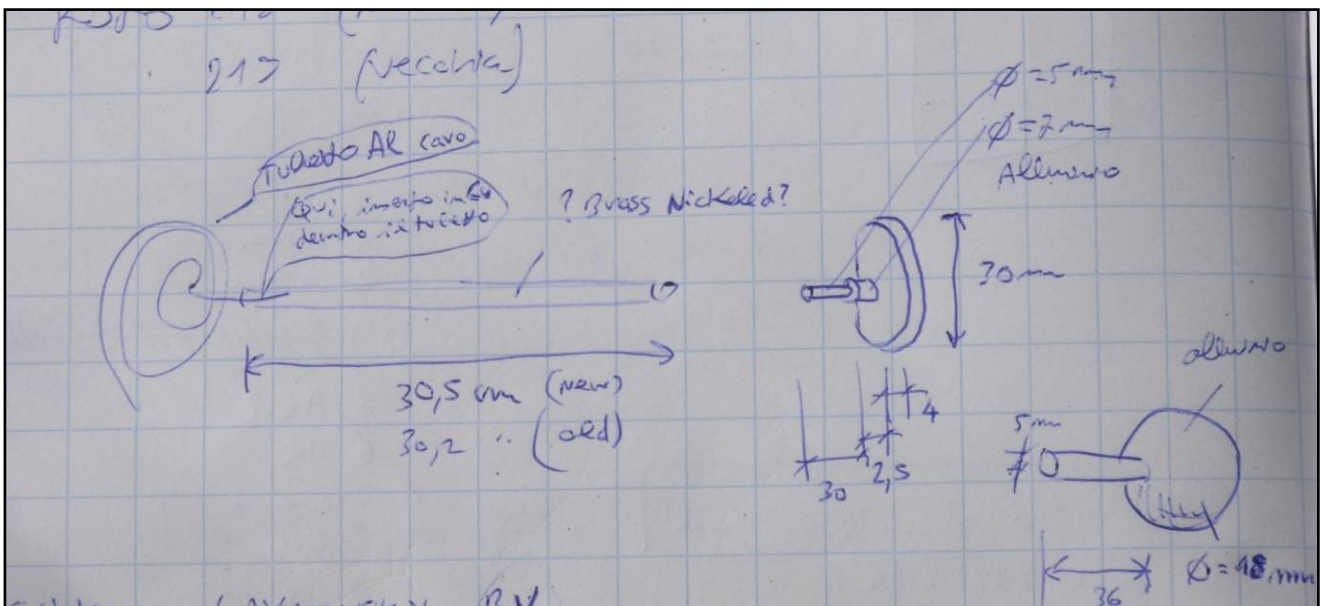 219 (vecchia)
Tubetto Al cavo
Qui inserto in Cu
dentro il tubetto
? Brass Nickeled?
30,5 cm (new)
30,2 " (old)
Ø = 5 mm
Ø = 7 mm
Alluminio
30 mm
4
2,5
30
alluminio
5 mm
36
Ø = 18 mm